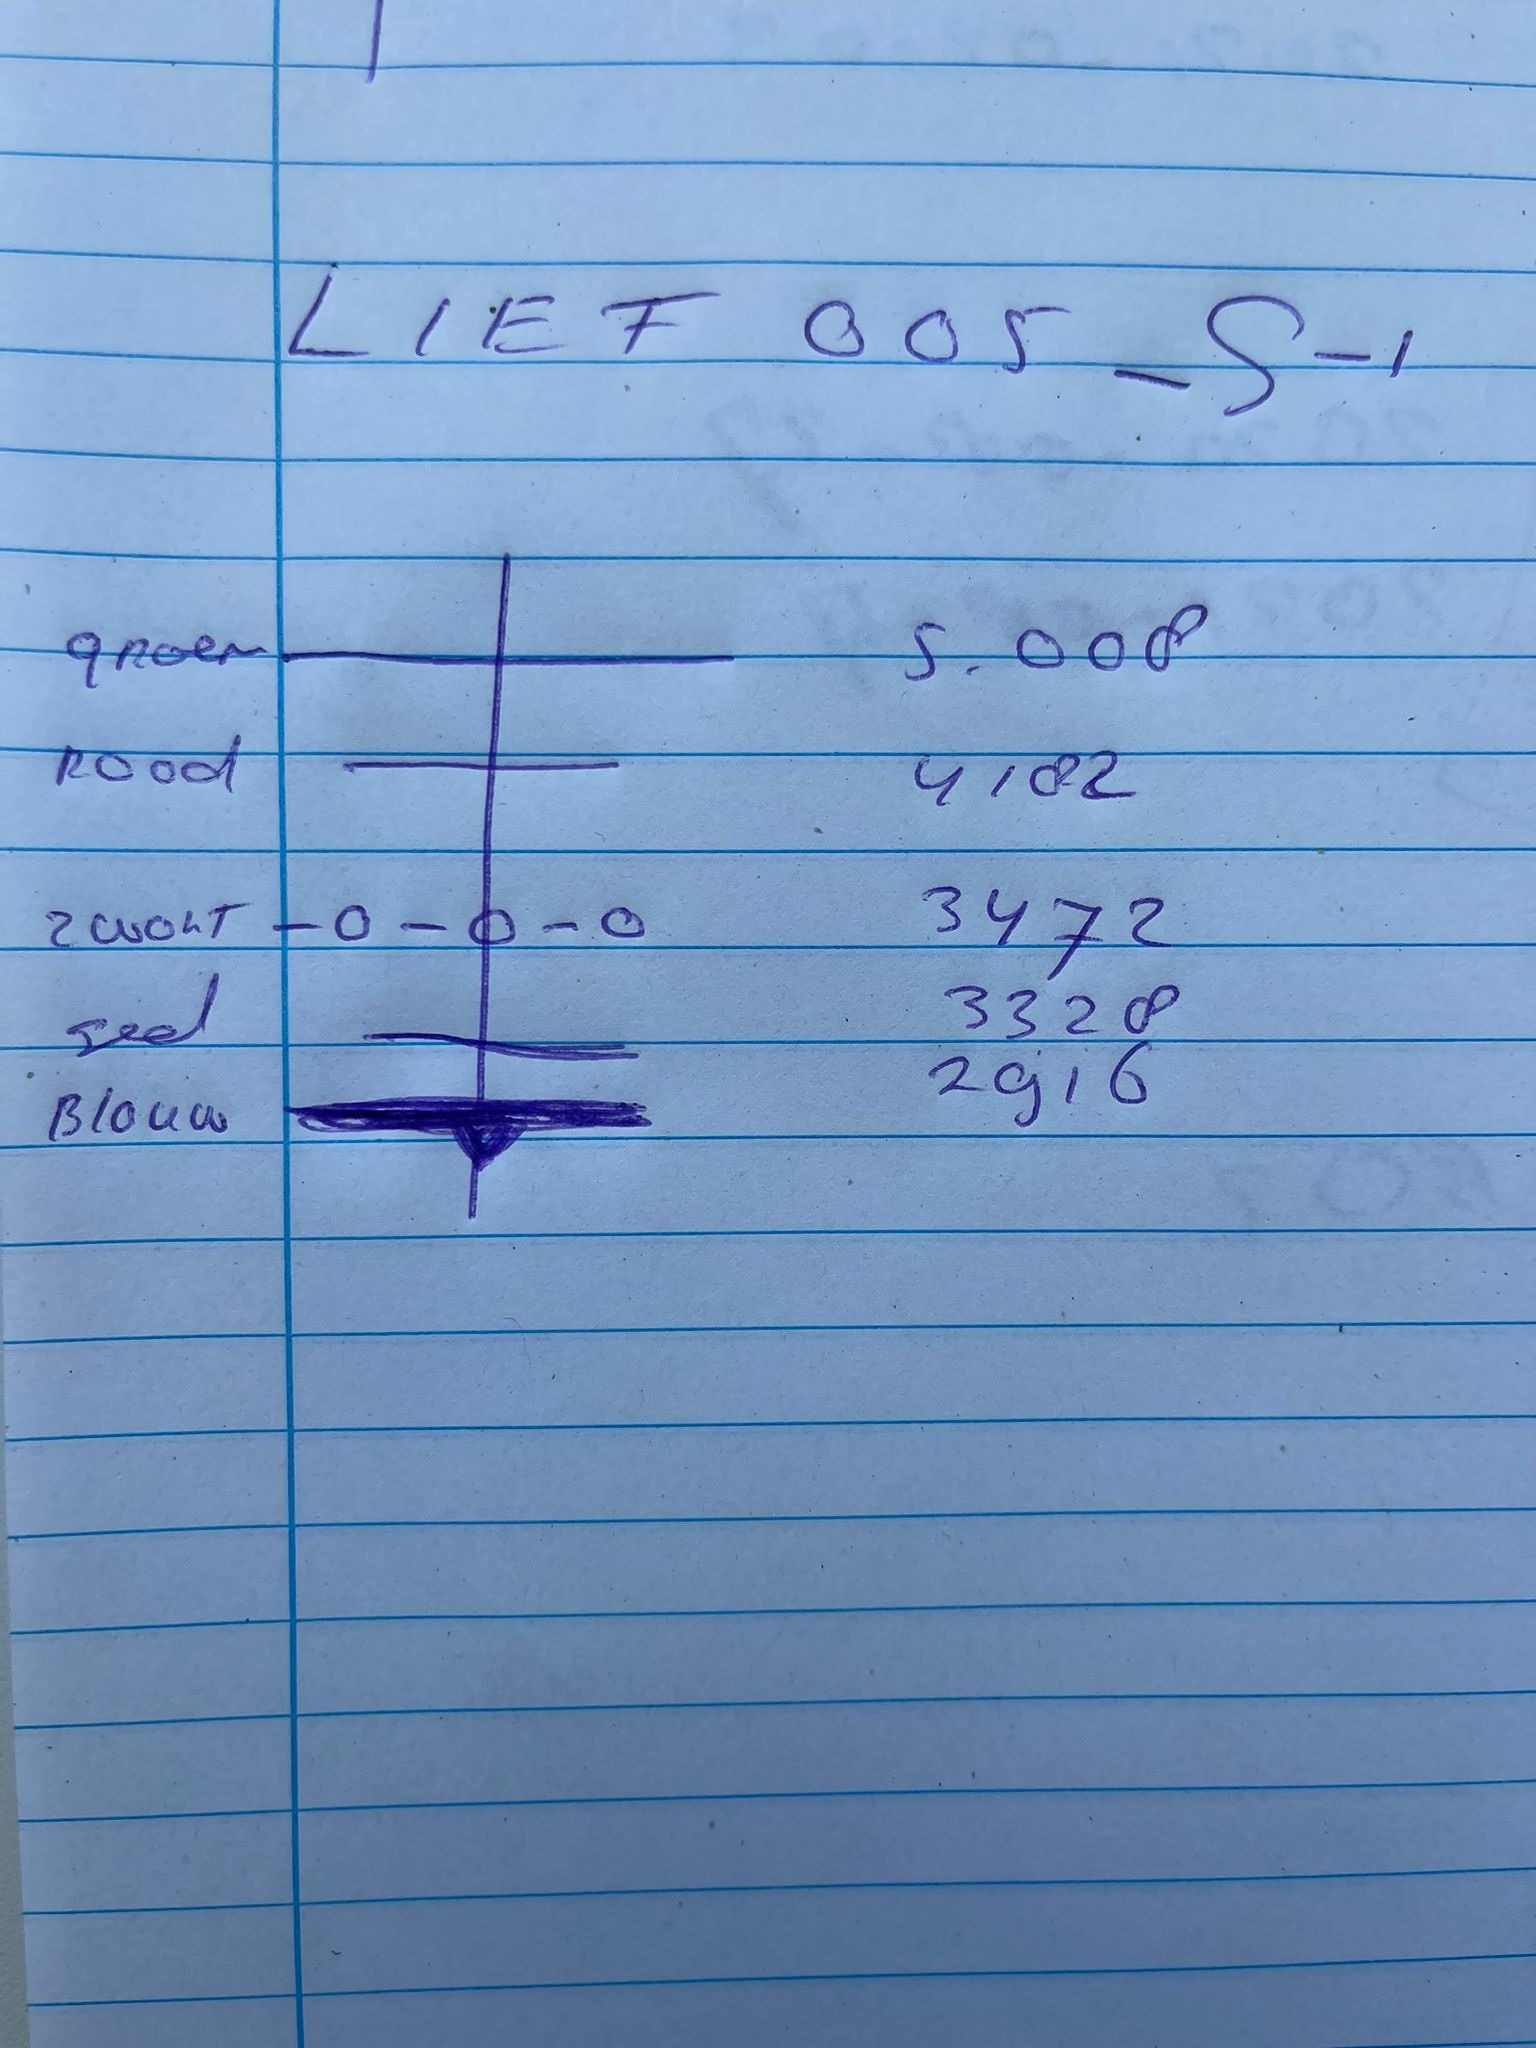 LIEF 005_S-1
groen 5.008
Rood 4182
zwart -0-0-0 3472
geel 3328
Blauw 2916